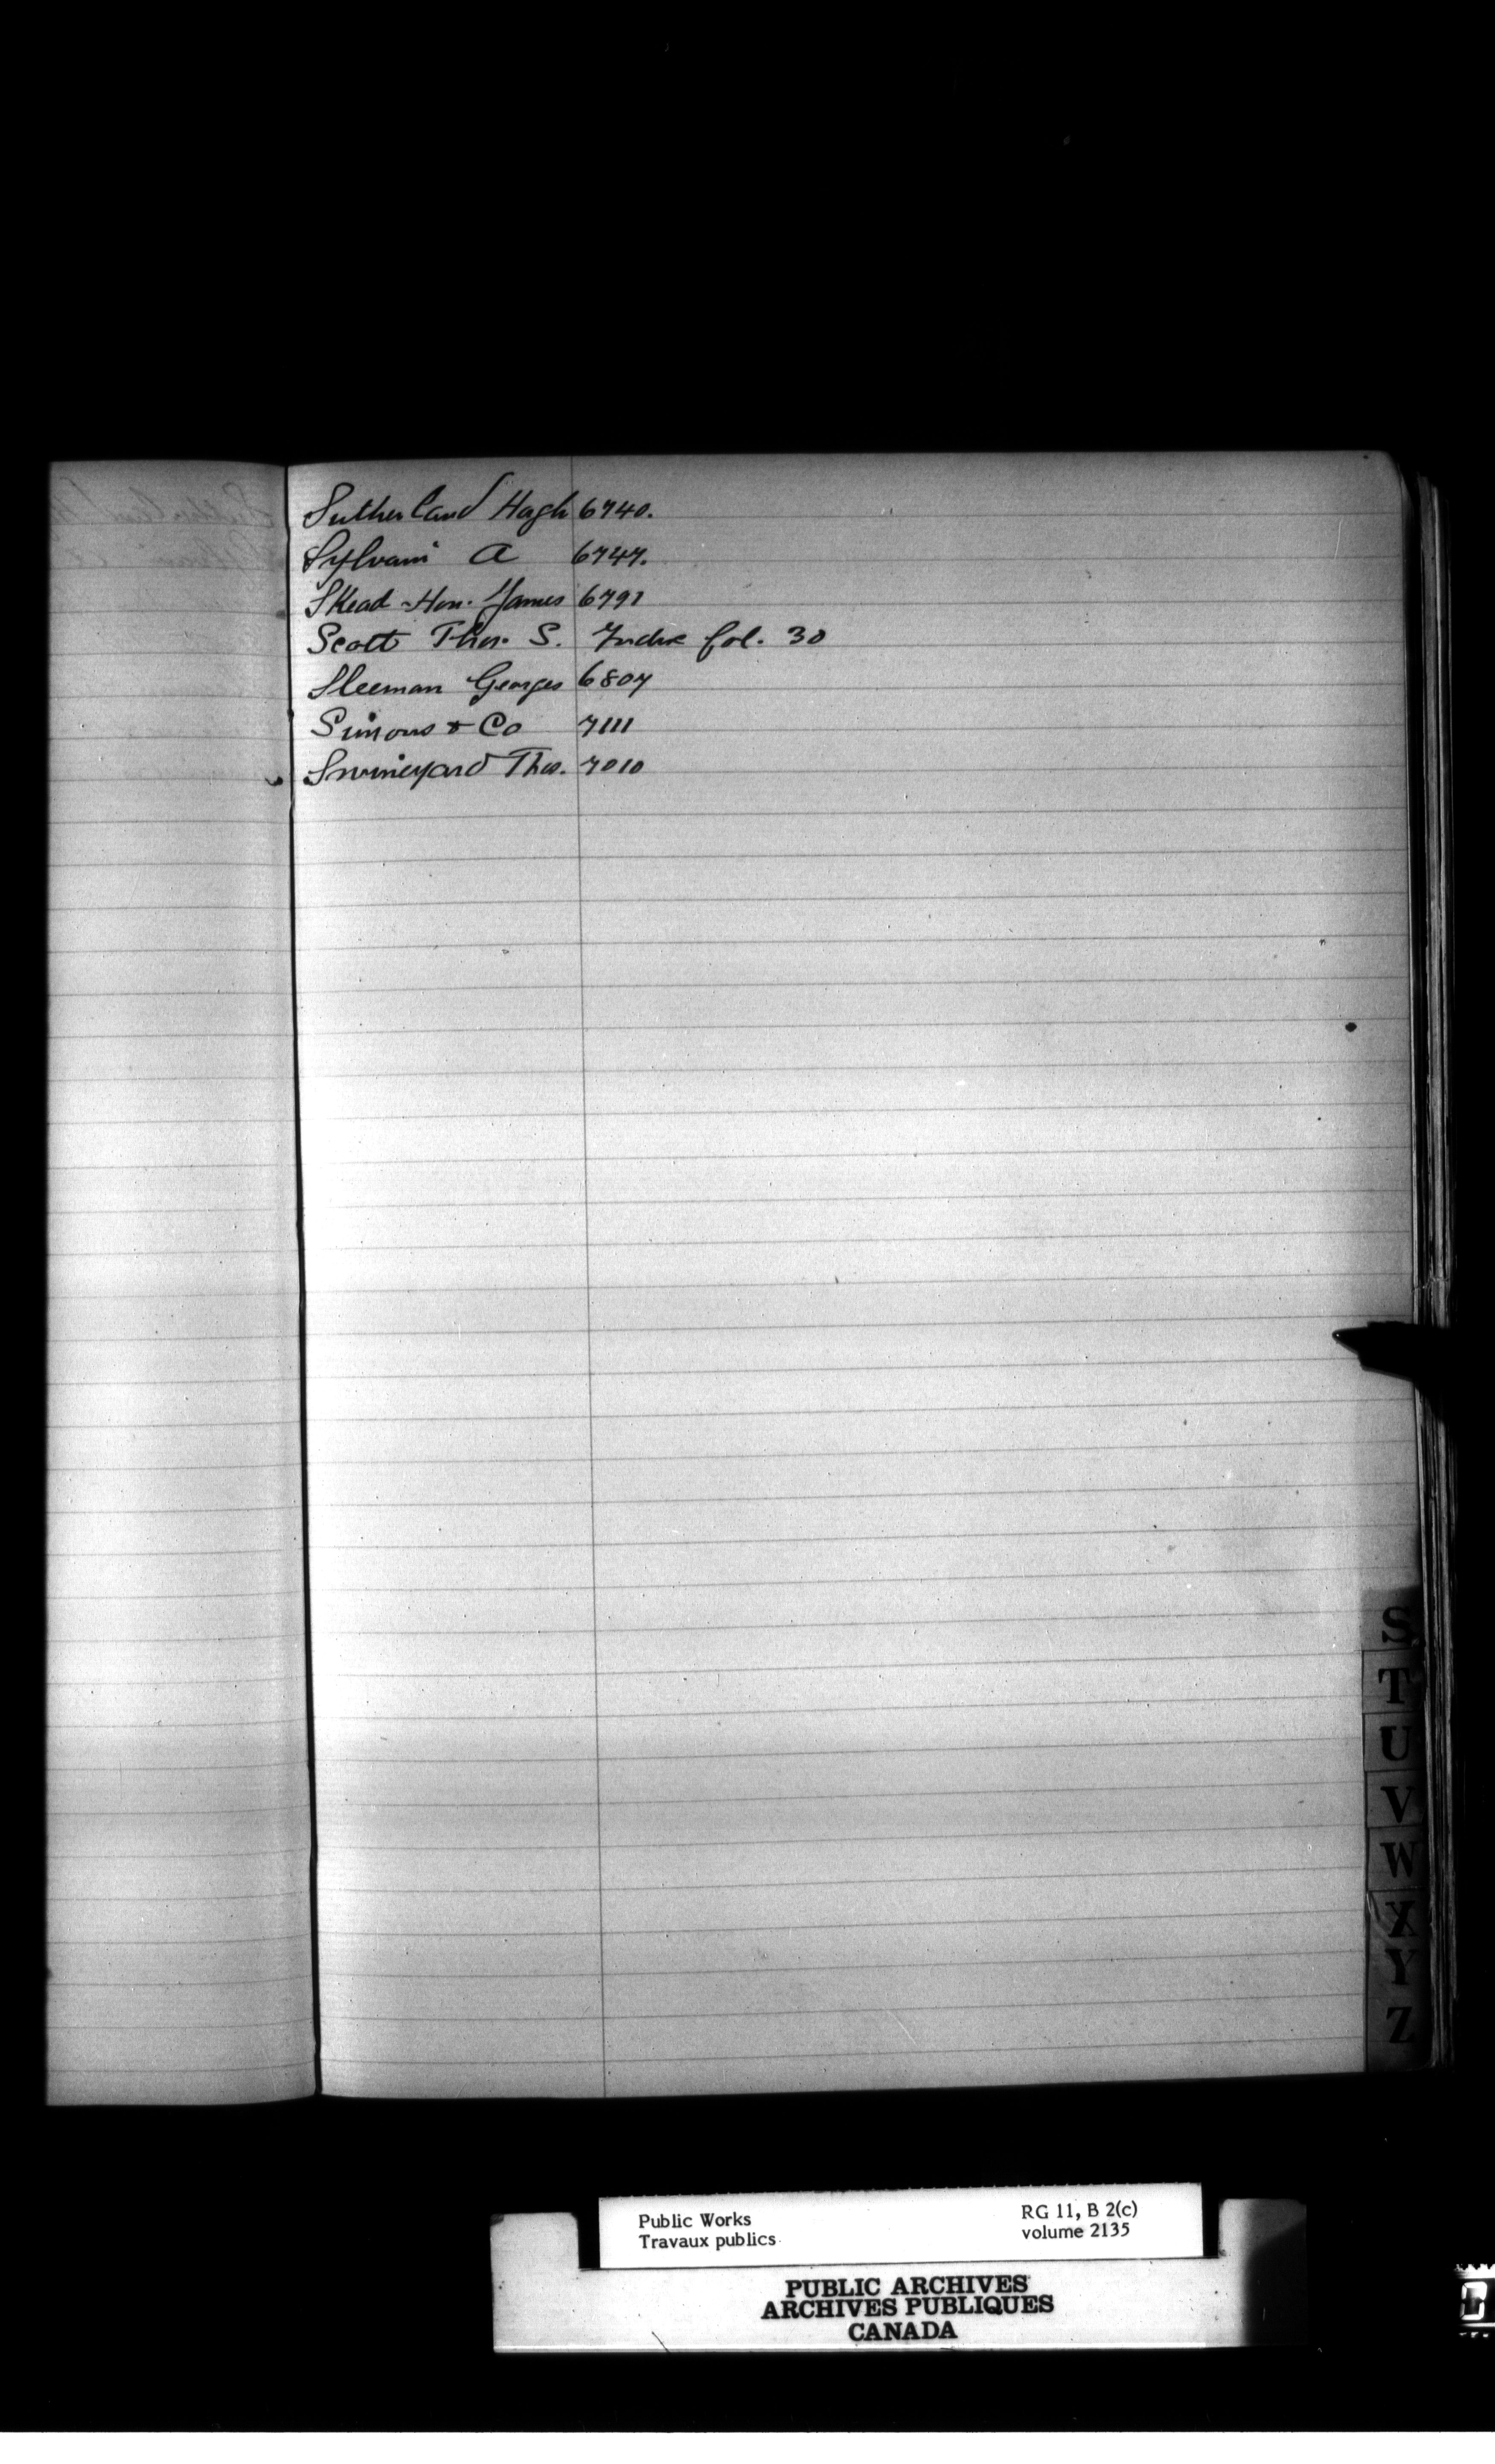 Sutherland Hugh 6740.
Sylvain A 6747.
Skead Hon. James 6791
Scott Thos. S. Index fol. 30
Sleeman Georges 6807
Simons & Co 7111
Swineyard Thos. 7010
S
T
U
V
W
X
Y
Z
Public Works RG 11, B 2(c)
Travaux publics volume 2135
PUBLIC ARCHIVES
ARCHIVES PUBLIQUES
CANADA